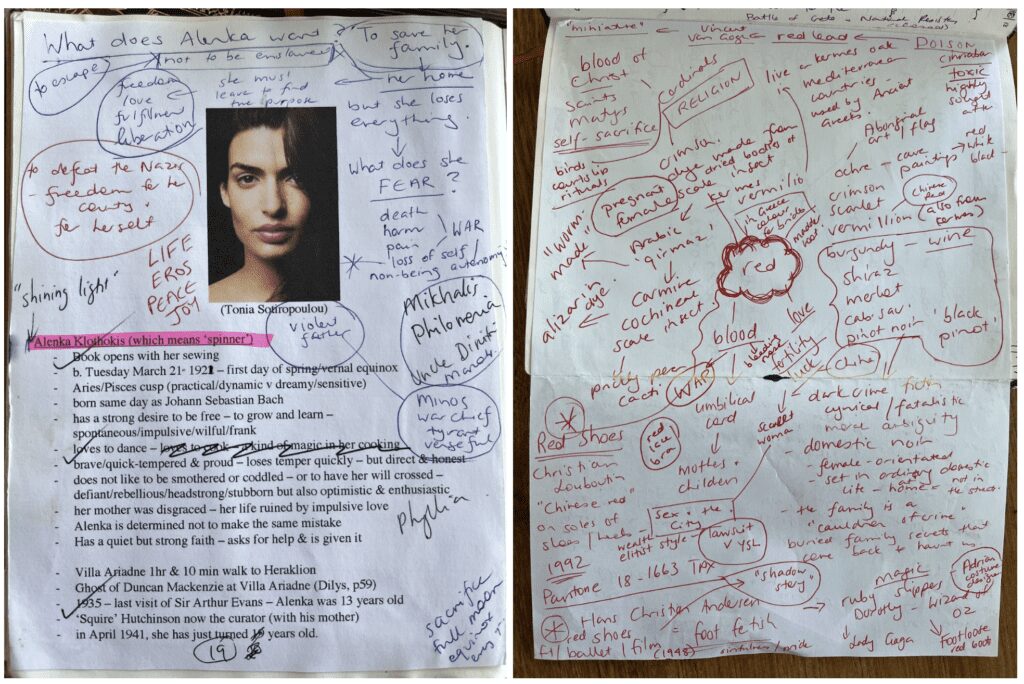 What does Alenka want?
(not to be enslaved)
To save her
family.
to escape
freedom
love
fulfilment
liberation
she must
leave to find
her purpose
her home
but she loses
everything.
What does she
FEAR?
death
harm
pain
WAR
loss of self/
non-being autonomy.
to defeat the Nazis
- freedom for her
country.
for herself
LIFE
EROS
PEACE
JOY
"shining light"
(Tonia Sotiropoulou)
violent
father
Mikhalis
Philomena
Uncle
Minos
war chief
tyrant
vengeful
Alenka Klothokis (which means 'spinner')
- Book opens with her sewing
- b. Tuesday March 21st 1921 – first day of spring/vernal equinox
- Aries/Pisces cusp (practical/dynamic v dreamy/sensitive)
- born same day as Johann Sebastian Bach
- has a strong desire to be free – to grow and learn –
spontaneous/impulsive/wilful/frank
- loves to dance – loves to cook – a kind of magic in her cooking
- brave/quick-tempered & proud – loses temper quickly – but direct & honest
- does not like to be smothered or coddled – or to have her will crossed –
defiant/rebellious/headstrong/stubborn but also optimistic & enthusiastic
- her mother was disgraced – her life ruined by impulsive love
- Alenka is determined not to make the same mistake
- Has a quiet but strong faith – asks for help & is given it
- Villa Ariadne 1hr & 10 min walk to Heraklion
- Ghost of Duncan Mackenzie at Villa Ariadne (Dilys, p59)
- 1935 – last visit of Sir Arthur Evans – Alenka was 13 years old
- 'Squire' Hutchinson now the curator (with his mother)
- in April 1941, she has just turned 19 years old.
19
sacrifice
full moon
equinox
"miniature"
Vincent
Van Gogh
red lead
POISON
cinnabar
toxic
highly
blood of
Christ
saints
self-sacrifice
cardinals
RELIGION
birds
courtship
rituals
live on kermes oak
mediterranean
countries -
used by Ancient
Greeks.
Aboriginal
art, flag
ochre - cave
paintings
red
white
black
crimson.
dye made from
dried bodies of
scale insect
kermes
vermilio
pregnant
females
"worm-
made"
Arabic
'qirmaz'
alizarin
dye.
carmine
cochineal
insect
scale
prickly pear
cacti
in Greece
colour
for brides
red
crimson
scarlet
vermillion
Chinese
Red
(also from
burgundy - wine
shiraz
merlot
cab sav
pinot noir
'black
pinot'
blood
love
fertility
luck
China
WAR
umbilical
cord
mother &
children
scarlet
woman
red
lace
bra
Red Shoes
Christian
Louboutin
"Chinese red"
on soles of
shoes/heels
1992
Pantone 18-1663 TPX
sex & the
City
wealth
elitist style
lawsuit
v YSL
"shadow
story"
dark crime fiction
cynical/fatalistic
moral ambiguity
- domestic noir
- female-orientated
- set in ordinary domestic
life - home - not in
the street.
- the family is a
"cauldron of crime"
buried family secrets that
come back to haunt us
magic
ruby slippers
Dorothy - Wizard of
OZ
Adrian
costume
designer
Lady Gaga
Footloose
red boots
Hans Christian Andersen
red shoes
ft/ballet/film
(1948)
= foot fetish
sinfulness/pride